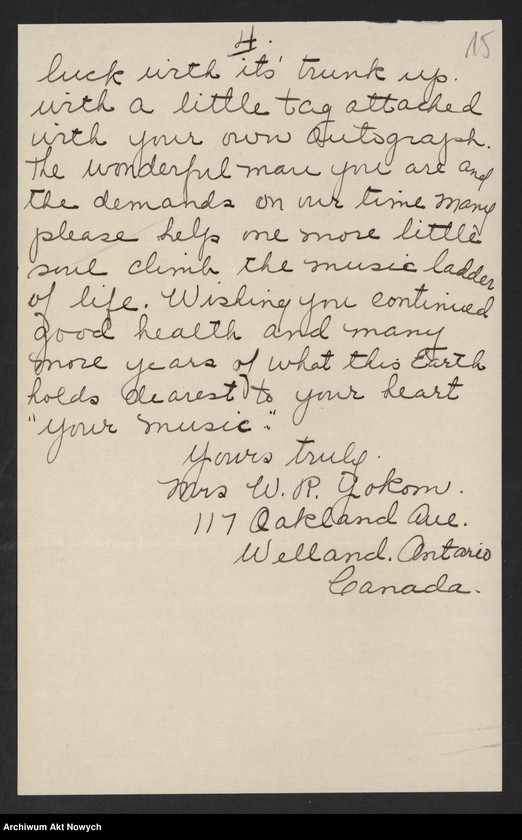 4.
15
luck with its' trunk up.
with a little tag attached
with your own autograph.
The wonderful man you are and
the demands on our time many
please help one more little
soul climb the music ladder
of life. Wishing you continued
good health and many
more years of what this Earth
holds dearest) to your heart
"your music".
Yours truly.
Mrs W. R. Yokom.
117 Oakland Ave.
Welland. Ontario
Canada.
Archiwum Akt Nowych